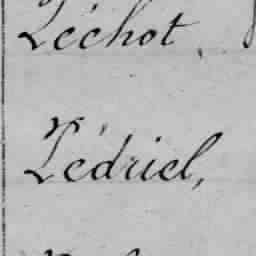 Léchot.
Lédriel,